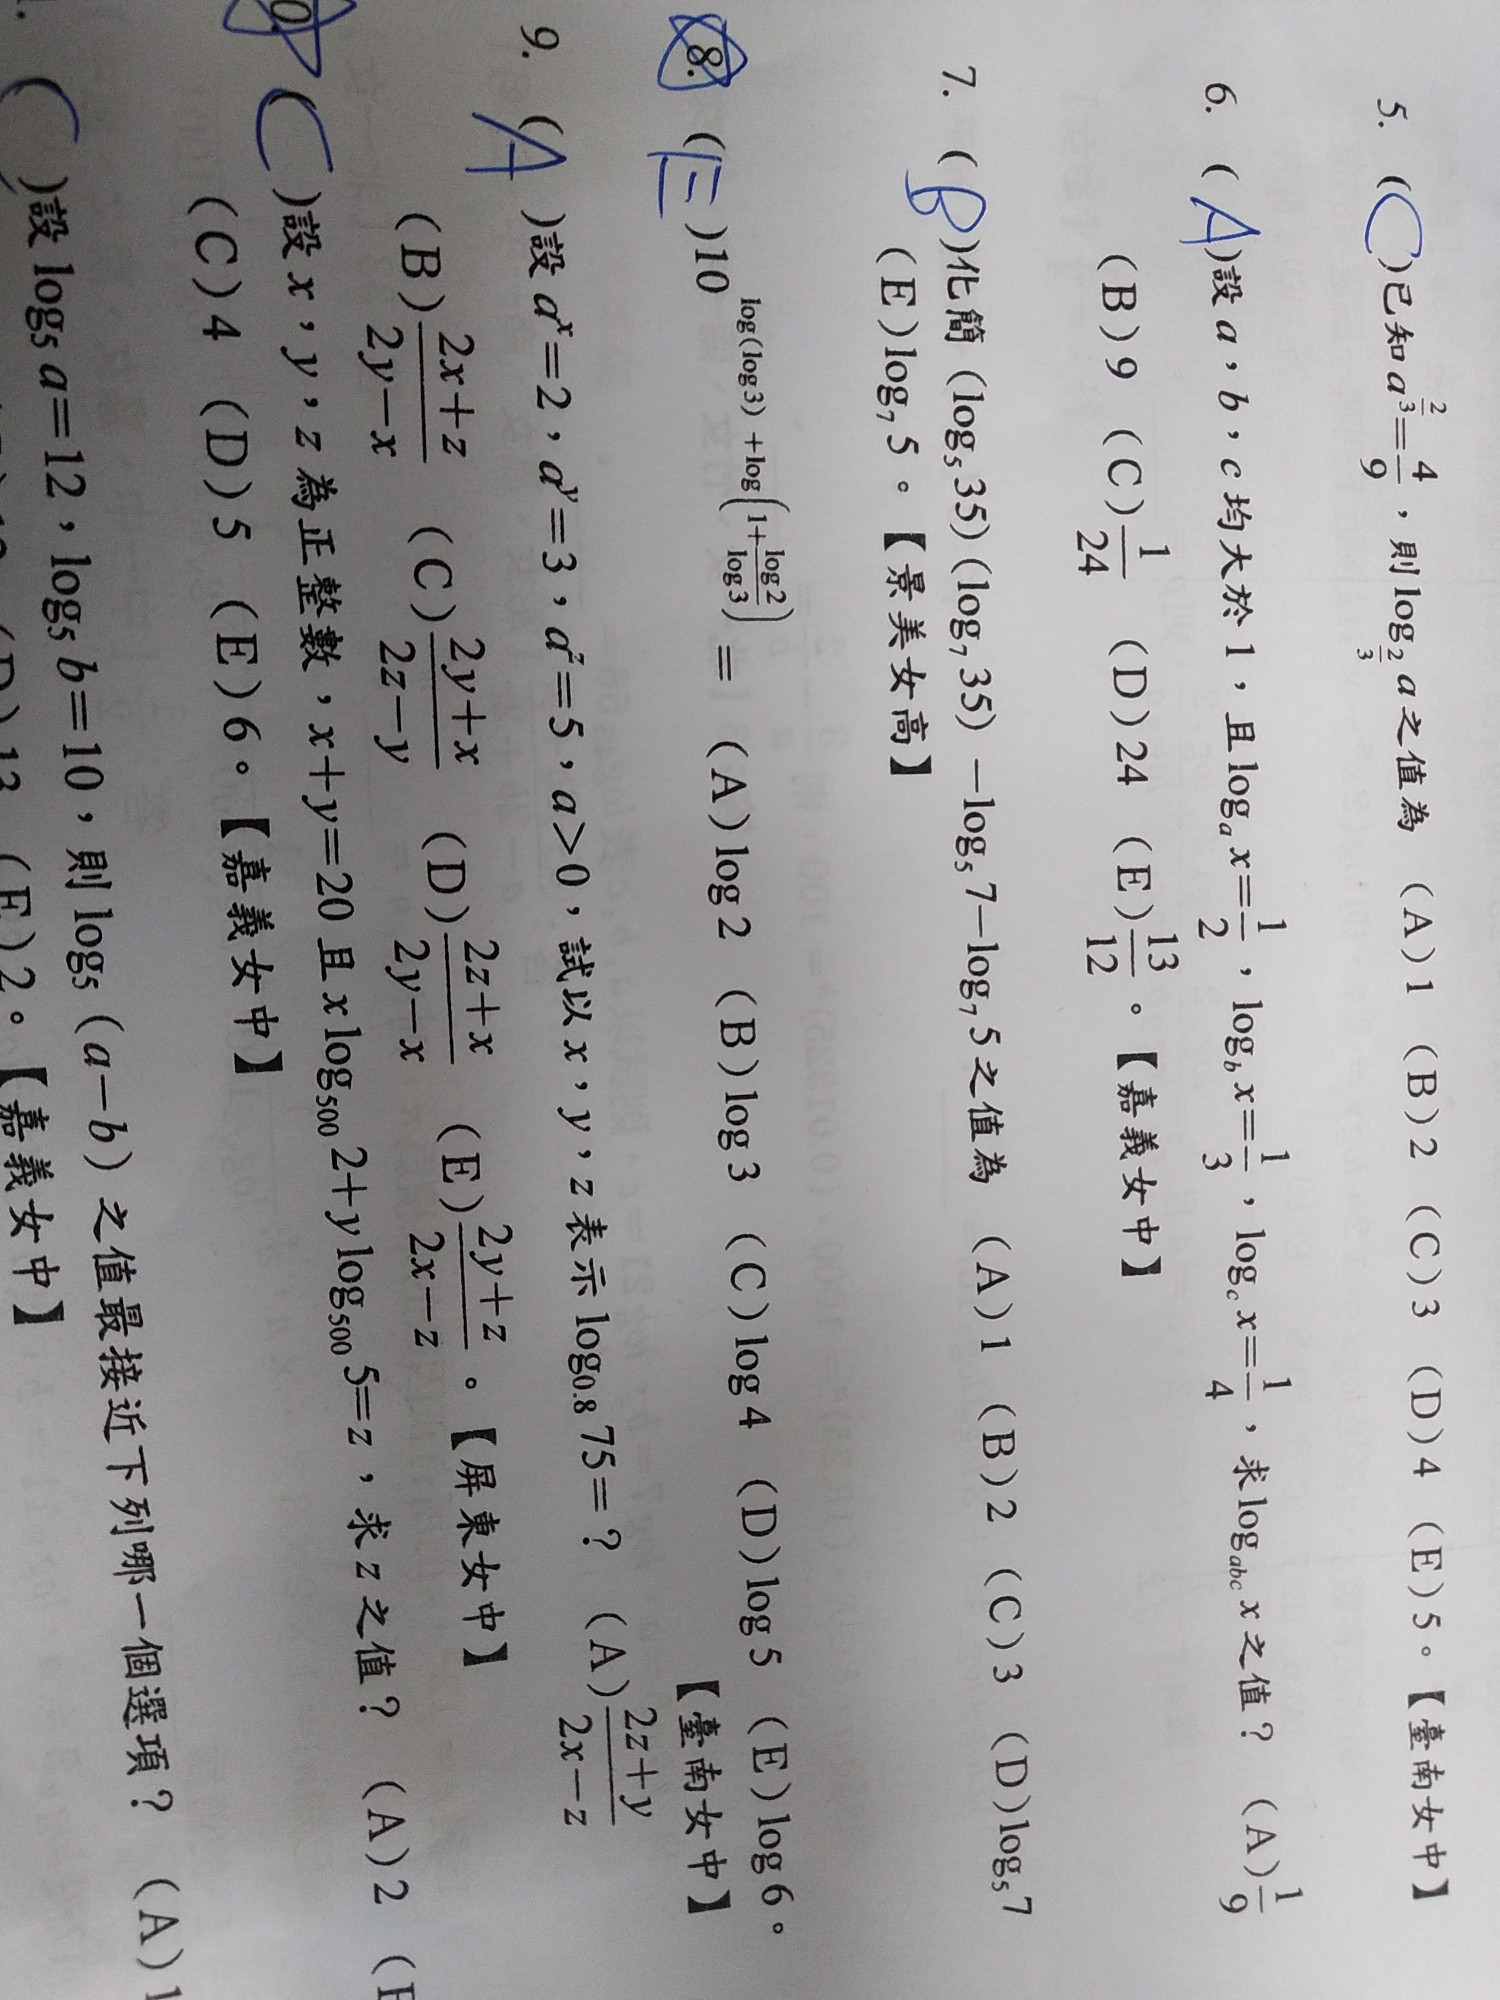 5. (C)已知a^{\frac{2}{3}}=\frac{4}{9}，則log_{\frac{2}{3}}a之值為 (A)1 (B)2 (C)3 (D)4 (E)5。【臺南女中】
6. (A)設a，b，c均大於1，且log_a x=\frac{1}{2}，log_b x=\frac{1}{3}，log_c x=\frac{1}{4}，求log_{abc} x之值？ (A)\frac{1}{9}
(B)9 (C)\frac{1}{24} (D)24 (E)\frac{13}{12}。【嘉義女中】
7. (B)化簡（log_5 35）（log_7 35）－log_5 7－log_7 5之值為 (A)1 (B)2 (C)3 (D)log_5 7
(E)log_7 5。【景美女高】
8. (E)10^{log(log3)+log(1+\frac{log2}{log3})}= (A)log2 (B)log3 (C)log4 (D)log5 (E)log6。
【臺南女中】
9. (A)設a^x=2，a^y=3，a^z=5，a>0，試以x，y，z表示log_{0.8}75=？ (A)\frac{2z+y}{2x-z}
(B)\frac{2x+z}{2y-x} (C)\frac{2y+x}{2z-y} (D)\frac{2z+x}{2y-x} (E)\frac{2y+z}{2x-z}。【屏東女中】
0. (C)設x，y，z為正整數，x+y=20且x log_{500}2+y log_{500}5=z，求z之值？ (A)2
(C)4 (D)5 (E)6。【嘉義女中】
(C)設log_5 a=12，log_5 b=10，則log_5（a-b）之值最接近下列哪一個選項？ (A)1
(D)13 (E)2。【嘉義女中】